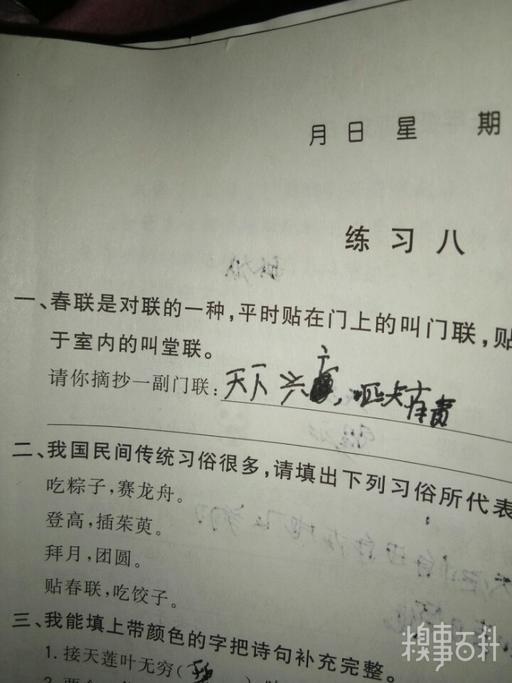 月 日 星 期
练 习 八
一、春联是对联的一种，平时贴在门上的叫门联，贴
于室内的叫堂联。
请你摘抄一副门联：天下兴亡，匹夫有责
二、我国民间传统习俗很多，请填出下列习俗所代表
吃粽子，赛龙舟。
登高，插茱萸。
拜月，团圆。
贴春联，吃饺子。
三、我能填上带颜色的字把诗句补充完整。
1. 接天莲叶无穷(
糗事百科